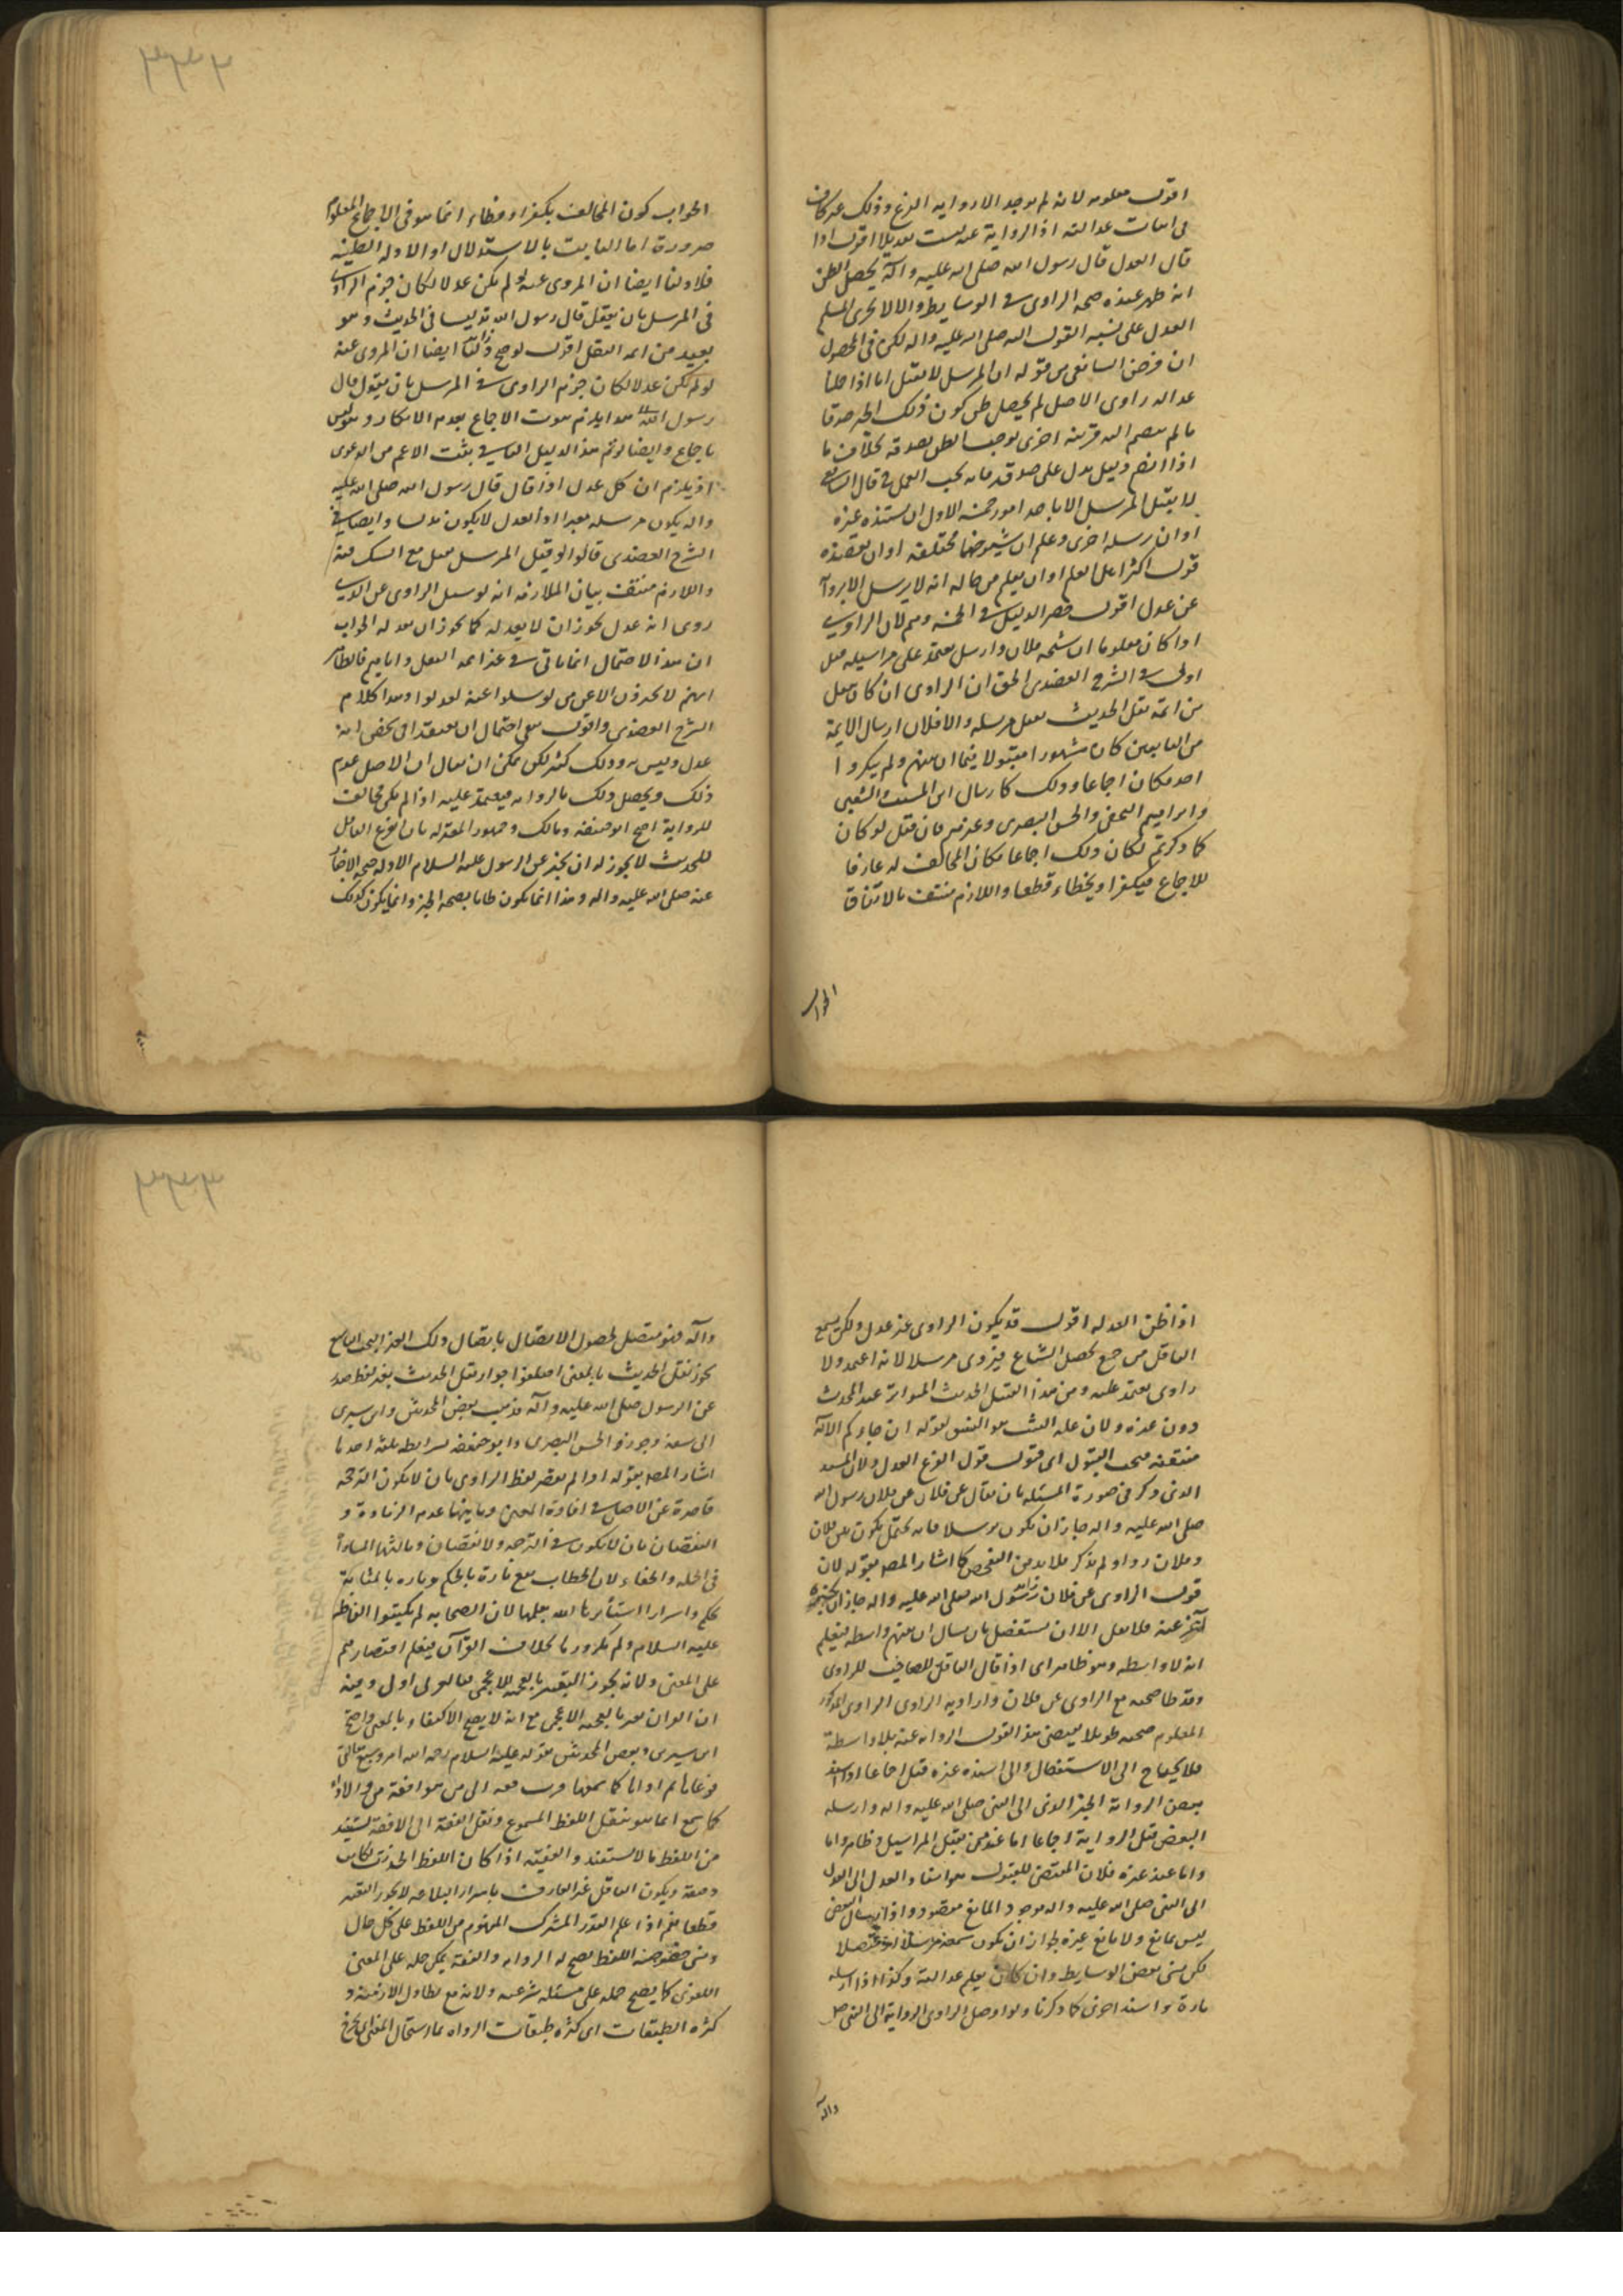 اقول معلومه لانه لم يوجد الا رواية الفرع وذلك غير كاف
فى اثبات عدالته اذ الرواية عنه ليست تعديلا اقول اذا
قال العدل قال رسول الله صلى الله عليه وآله يحصل الظن
انه ظهر عنده صحه الراوى فى الوسايط والا لا يجرى المسلم
العدل على نسبه القول اليه صلى الله عليه واله لكن فى المحصول
ان فرض الشافعى من قوله ان المرسل لا يقبل اما اذا جهلنا
عداله راوى الاصل لم يحصل ظن كون ذلك الخبر صدقا
ما لم ينضم اليه قرينه اخرى توجب الظن بصدقه بخلاف ما
اذا انضم دليل يدل على صدقه فانه يجب العمل قال الشافعى
لا يقبل المرسل الا باحد امور خمسه الاول ان يسنده غيره
او ان يرسله اخرى وعلم ان شيوخهما مختلفه او ان يعضده
قول اكثر اهل العلم او ان يعلم من حاله انه لا يرسل الا برواية
عن عدل اقول حصر الدليل فى الخمسه ومم لان الراوى
اذا كان معلوما ان شيخه فلان وارسل يعتمد على مراسيله قيل
اولى فى الشرح العضدى الحق ان الراوى ان كان
من ائمة نقل الحديث يقبل مرسله والا فلا لان ارسال الايمة
من التابعين كان مشهورا مقبولا فيما بينهم ولم ينكروا
احد فكان اجماعا وذلك كارسال ابن المسيب والشعبى
وابراهيم النخعى والحسن البصرى وغيرهم فان قيل لو كان
كما ذكرتم لكان ذلك اجماعا فكان المخالف له خارقا
للاجماع فيكفر او يخطاء قطعا واللازم منتف بالاتفاق
الجواب
٣٣٢
الجواب كون المخالف يكفر او يخطاء انما هو فى الاجماع المعلوم
ضرورة اما الثابت بالاستدلال او الادله الظنيه
فلا ولنا ايضا ان المروى عنه لو لم يكن عدلا لكان جزم الراوى
فى المرسل بان يقول قال رسول الله تدليسا فى الحديث وهو
بعيد من ائمه النقل اقول لو صح ذلك ايضا ان المروى عنه
لو لم يكن عدلا لكان جزم الراوى فى المرسل بان يقول قال
رسول الله هذا يلزم ثبوت الاجماع بعدم الانكار وهو ليس
باجماع وايضا لو تم هذا الدليل الثانى يثبت الاعم من الدعوى
اذ يلزم ان كل عدل اذا قال قال رسول الله صلى الله عليه
واله يكون مرسله معتبرا اذ العدل لا يكون مدلسا وايضا فى
الشرح العضدى قالوا لو قبل المرسل لقبل مع الشك فيه
واللازم منتف بيان الملازمه انه لو سئل الراوى عن الذى
روى انه عدل يجوز ان لا يعدله كما يجوز ان يعدله الجواب
ان هذا الاحتمال انما ياتى فى غير ائمه النقل واياهم فالظاهر
انهم لا يجزمون الا عن من لو سئلوا عنه لعدلوا وهذا كلام
الشرح العضدى واقول بقى احتمال ان يعتقد ان شخصا انه
عدل وليس به وذلك كثير لكن يمكن ان يقال ان الاصل عدم
ذلك ويحصل ذلك بالرواية فيعتمد عليه اذا لم يكن مخالف
للرواية احتج ابو حنيفه ومالك وجمهور المعتزله بان الفرع الناقل
للحديث لا يجوز له ان يخبر عن الرسول عليه السلام الا وله صحه الاخبار
عنه صلى الله عليه واله وهذا انما يكون ظانا بصحه الخبر وانما يكون كذلك
اذا ظن العداله اقول قد يكون الراوى غير عدل ولكن يسمع
الناقل من جمع يحصل الشياع فيروى مرسلا لانه اعتمد ولا
راوى يعتمد عليه ومن هذا القبيل الحديث المتواتر عند المحدث
دون غيره ولان علة التثبت هو الفسق لقوله ان جاءكم الآية
منتفيه فيجب القبول اى قبول قول الفرع العدل ولان المسند
الذى ذكر فى صورة المسئله بان يقال عن فلان عن فلان رسول الله
صلى الله عليه واله جاز ان يكون مرسلا فانه يحتمل يكون بين فلان
وفلان رواة ولم يذكر فلا بد من الفحص كما اشار المص بقوله لان
قول الراوى عن فلان عن رسول الله صلى الله عليه واله جاز ان يخبره
آخر عنه فلا يقبل الا ان يستفصل بان يسال ان بينهم واسطه فيعلم
انه لا واسطه وهو ظاهر اى اذا قال الناقل الصاحب للراوى
وقد طال صحبته مع الراوى عن فلان واراد به الراوى الراوى المذكور
المعلوم صحبته طويلا يقتضى هذا القول الرواية عنه بلا واسطة
فلا يحتاج الى الاستفصال والى اسنده غيره قبل اجماعا اذا اسند
بعض الرواة الخبر الذى الى النبى صلى الله عليه واله وارسله
البعض قبل الرواية اجماعا اما عند من يقبل المراسيل فظاهر واما
واما عند غيره فلان المقتضى للقبول هو اسناد العدل الى العدل
الى النبى صلى الله عليه واله موجود والمانع مفقود واذ ارسال البعض
ليس بمانع ولا مانع غيره لجواز ان يكون سمعه مرسلا او متصلا
لكن نسى بعض الوسايط وان كان يعلم عدالته وكذا اذا ارسله
تارة واسند اخرى كما ذكرنا ولو اوصل الراوى الرواية الى النبى صلى
واله
٣٣٣
وآله فهو متصل لحصول الاتصال بايصال ذلك العدل البحث التاسع
يجوز نقل الحديث بالمعنى اختلفوا جواز نقل الحديث بغير لفظ صدر
عن الرسول صلى الله عليه وآله فذهب بعض المحدثين وابن سيرين
الى منعه وجوزه الحسن البصرى وابو حنيفه بشرايط ثلثه احدها
اشار المص بقوله اذا لم يقصر لفظ الراوى بان لا يكون الترجمه
قاصرة عن الاصل فى افادة المعنى وثانيها عدم الزيادة و
النقصان بان لا يكون فى الترجمه ولا نقصان وثالثها المساواة
فى الجلاء والخفاء لان الخطاب يقع تارة بالمحكم وتارة بالمتشابه
لحكم واسرار استأثر بها الله بعلمها لان الصحابه لم يكتبوا الفاظه
عليه السلام ولم يكرروها بخلاف القرآن فيعلم اقتصارهم
على المعنى ولانه يجوز التعبير بالعجميه للاعجمى فبالعربى اولى وفيه
ان القران يعبر بالعجميه الاعجمى مع انه لا يصح الاكتفاء بالمعنى واحتج
ابن سيرين وبعض المحدثين بقوله عليه السلام رحم الله امرء سمع مقالتى
فوعاها ثم اداها كما سمعها فرب حامل فقه الى من هو افقه منه والاداء
كما سمع انما هو بنقل اللفظ المسموع ونقل الفقه الى الافقه ليستفيد
من اللفظ ما لا يستفيده الفقيه اذا كان اللفظ الحديث لطايف
دقيقه ويكون الناقل غير العارف باسرار البلاغه لا يجوز التغيير
قطعا نعم اذا علم القدر المشترك المفهوم من اللفظ على كل حال
ونسى خصوصيه اللفظ يصح له الرواية والفقه يمكن حمله على المعنى
اللغوى كما يصح حمله على مسئله شرعيه ولانه مع تطاول الازمنه و
كثرة الطبقات اى كثرة طبقات الرواة بها يستحال المعنى اى يخرج